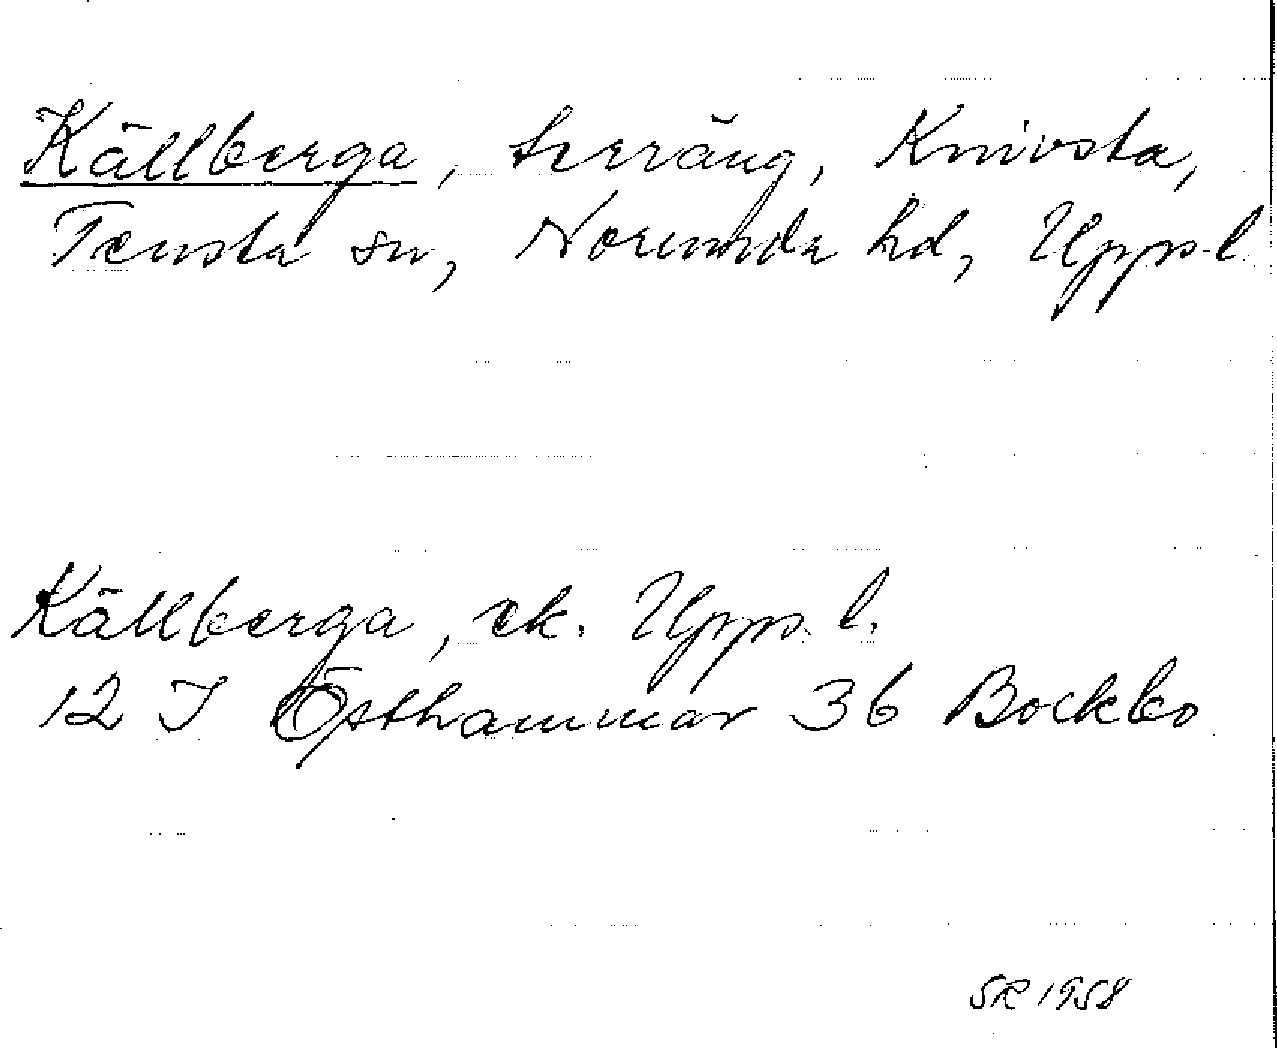 Källberga, terräng, Knivsta,
Tensta sn, Norunda hd, Upps. l.
Källberga, ek. Upps. l.
12 I Östhammar 36 Bockbo
SR 1958